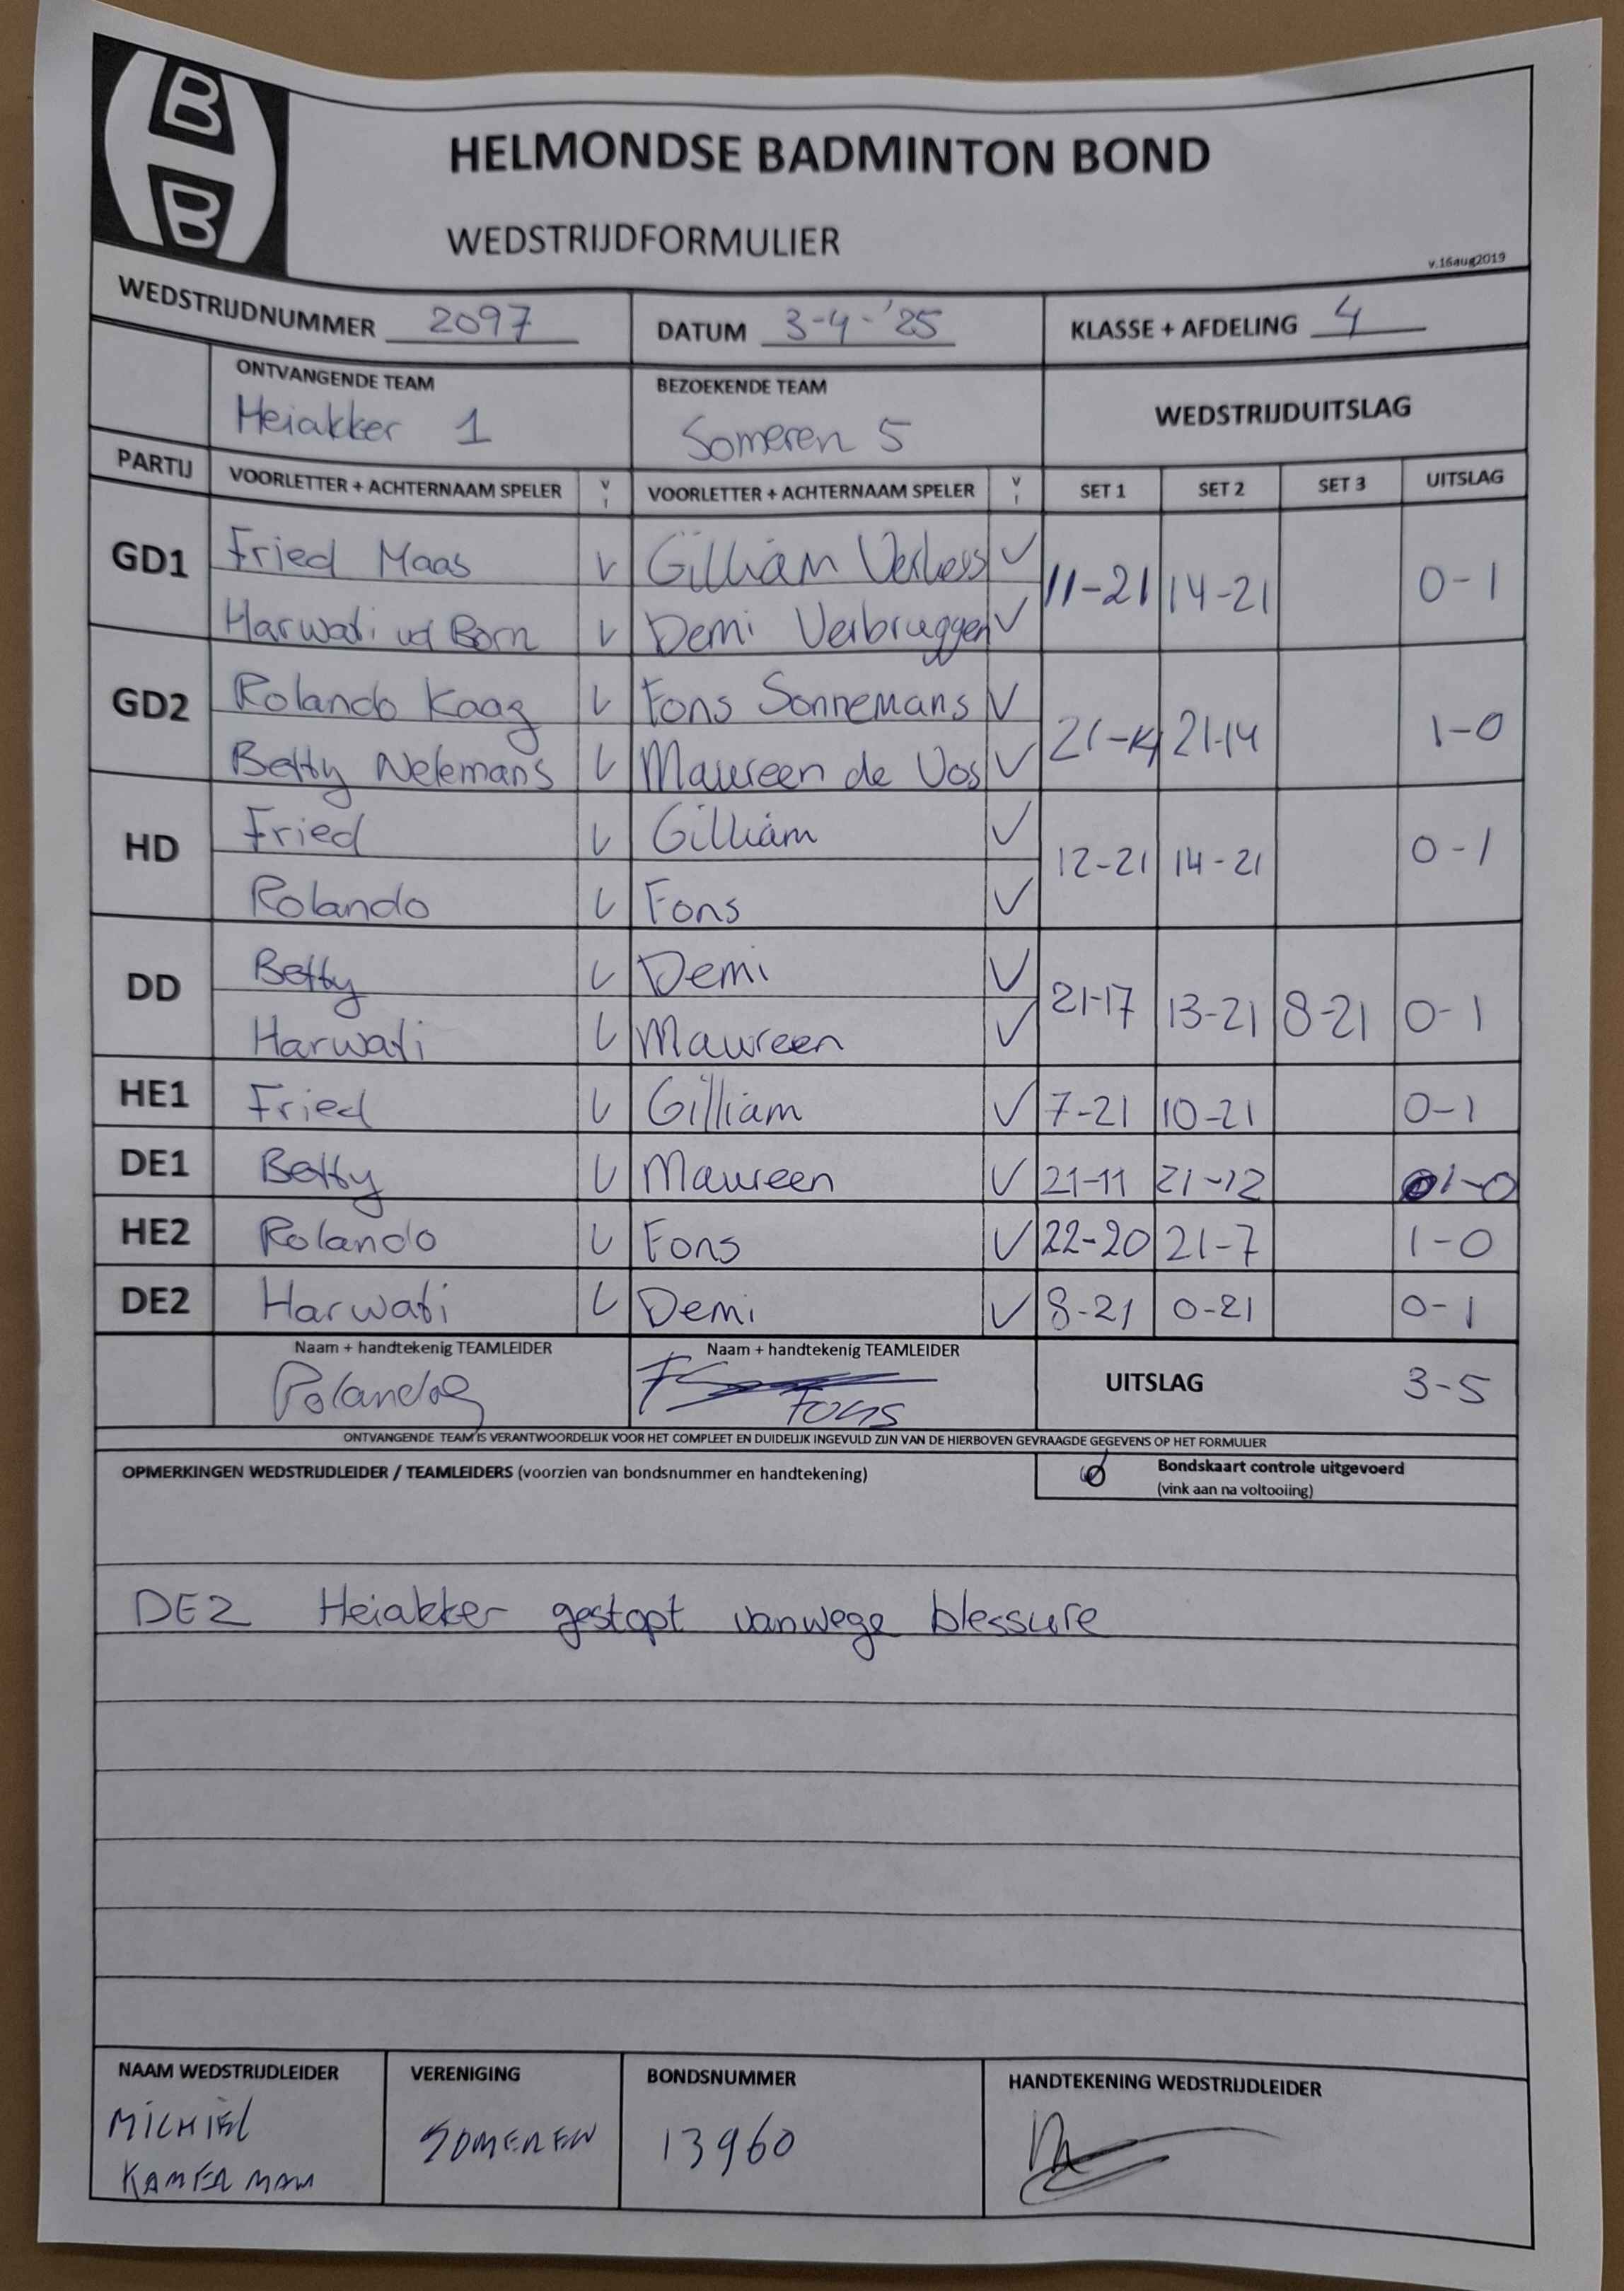 B
B
HELMONDSE BADMINTON BOND
WEDSTRIJDFORMULIER
v.16aug2019
WEDSTRIJDNUMMER 2097 DATUM 3-4-'25 KLASSE + AFDELING 4
ONTVANGENDE TEAM BEZOEKENDE TEAM WEDSTRIJDUITSLAG
Heiakker 1 Someren 5
PARTIJ VOORLETTER + ACHTERNAAM SPELER V VOORLETTER + ACHTERNAAM SPELER V SET 1 SET 2 SET 3 UITSLAG
GD1 Fried Maas V Gilliam V 11-21 14-21 0-1
Harwati vd Born V Demi Verbruggen V
GD2 Rolando Kaag V Fons Sonnemans V 21-14 21-14 1-0
Betty Nelemans V Maureen de Vos V
HD Fried V Gilliam V 12-21 14-21 0-1
Rolando V Fons V
DD Betty V Demi V 21-17 13-21 8-21 0-1
Harwati V Maureen V
HE1 Fried V Gilliam V 7-21 10-21 0-1
DE1 Betty V Maureen V 21-11 21-12 1-0
HE2 Rolando V Fons V 22-20 21-7 1-0
DE2 Harwati V Demi V 8-21 0-21 0-1
Naam + handtekenig TEAMLEIDER Naam + handtekenig TEAMLEIDER UITSLAG 3-5
Fons
ONTVANGENDE TEAM IS VERANTWOORDELIJK VOOR HET COMPLEET EN DUIDELIJK INGEVULD ZIJN VAN DE HIERBOVEN GEVRAAGDE GEGEVENS OP HET FORMULIER
OPMERKINGEN WEDSTRIJDLEIDER / TEAMLEIDERS (voorzien van bondsnummer en handtekening) Bondskaart controle uitgevoerd
(vink aan na voltooiing)
DE2 Heiakker gestopt vanwege blessure
NAAM WEDSTRIJDLEIDER VERENIGING BONDSNUMMER HANDTEKENING WEDSTRIJDLEIDER
MICHIEL SOMEREN 13960
KAMERMAN